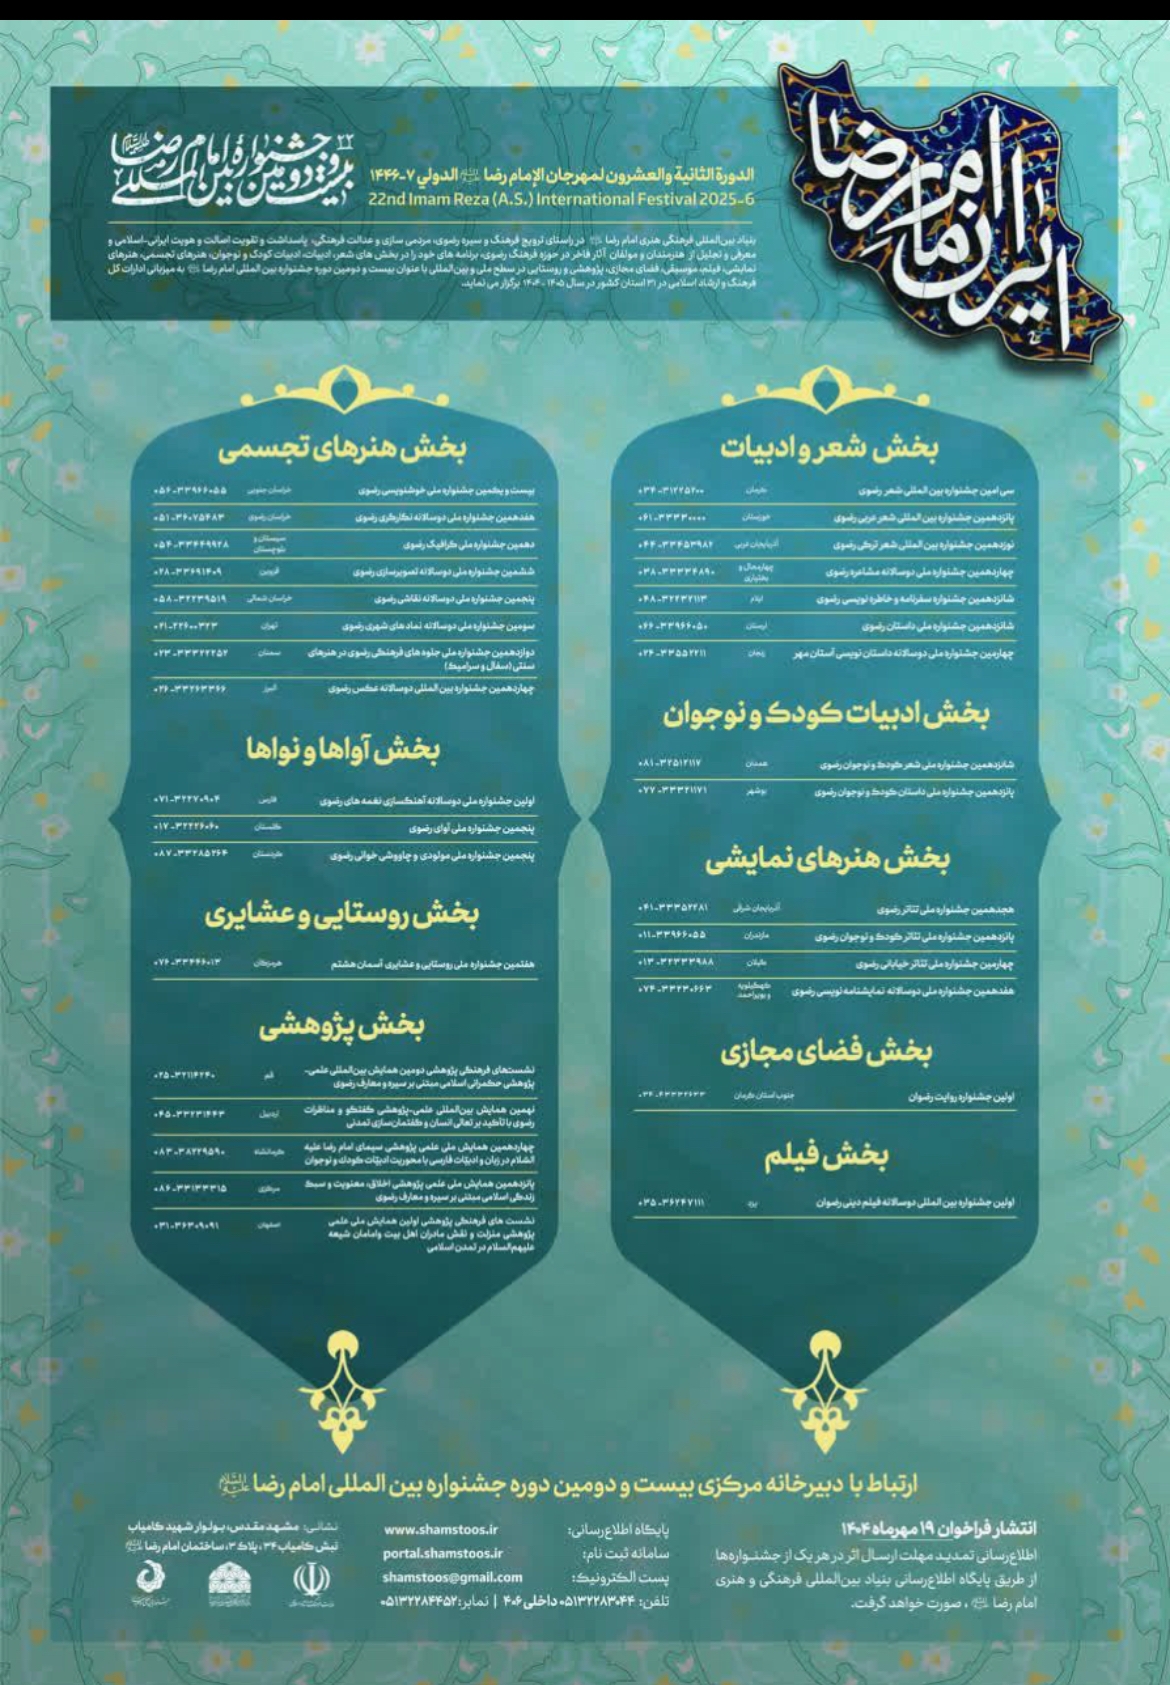 ایران امام رضا
۲۲
بیست و دومین جشنواره بین المللی امام رضا
الدورة الثانية والعشرون لمهرجان الإمام رضا الدولي ۷-۱۴۴۶
22nd Imam Reza (A.S.) International Festival 2025-6
بنیاد بین‌المللی فرهنگی هنری امام رضا در راستای ترویج فرهنگ و سیره رضوی، مردمی سازی و عدالت فرهنگی، پاسداشت و تقویت اصالت و هویت ایرانی-اسلامی و
معرفی و تجلیل از هنرمندان و مولفان آثار فاخر در حوزه فرهنگ رضوی، برنامه های خود را در بخش های شعر، ادبیات، ادبیات کودک و نوجوان، هنرهای تجسمی، هنرهای
نمایشی، فیلم، موسیقی، فضای مجازی، پژوهشی و روستایی در سطح ملی و بین‌المللی با عنوان بیست و دومین دوره جشنواره بین المللی امام رضا به میزبانی ادارات کل
فرهنگ و ارشاد اسلامی در ۳۱ استان کشور در سال ۱۴۰۵ - ۱۴۰۴ برگزار می نماید.
بخش شعر و ادبیات
سی امین جشنواره بین المللی شعر رضوی کرمان ۰۳۴-۳۱۲۲۵۲۰۰
پانزدهمین جشنواره بین المللی شعر عربی رضوی خوزستان ۰۶۱-۳۳۳۳۰۰۰۰
نوزدهمین جشنواره بین المللی شعر ترکی رضوی آذربایجان غربی ۰۴۴-۳۳۴۵۳۹۸۲
چهاردهمین جشنواره ملی دوسالانه مشاعره رضوی چهارمحال و بختیاری ۰۳۸-۳۳۳۳۴۸۹۰
شانزدهمین جشنواره سفرنامه و خاطره نویسی رضوی ایلام
شانزدهمین جشنواره ملی داستان رضوی لرستان ۰۶۶-۳۳۹۶۶۰۵۰
چهارمین جشنواره ملی دوسالانه داستان نویسی آستان مهر زنجان ۰۲۴-۳۳۵۵۲۲۱۱
بخش ادبیات کودک و نوجوان
شانزدهمین جشنواره ملی شعر کودک و نوجوان رضوی همدان ۰۸۱-۳۲۵۱۲۱۱۷
پانزدهمین جشنواره ملی داستان کودک و نوجوان رضوی بوشهر ۰۷۷-۳۳۳۲۱۱۷۱
بخش هنرهای نمایشی
هجدهمین جشنواره ملی تئاتر رضوی آذربایجان شرقی ۰۴۱-۳۳۳۵۲۲۸۱
پانزدهمین جشنواره ملی تئاتر کودک و نوجوان رضوی مازندران ۰۱۱-۳۳۹۶۶۰۵۵
چهارمین جشنواره ملی تئاتر خیابانی رضوی گیلان ۰۱۳-۳۲۳۳۳۹۸۸
هفدهمین جشنواره ملی دوسالانه نمایشنامه نویسی رضوی کهگیلویه و بویراحمد ۰۷۴-۳۳۲۳۰۶۶۳
بخش فضای مجازی
اولین جشنواره روایت رضوان جنوب استان کرمان
بخش فیلم
اولین جشنواره بین المللی دوسالانه فیلم دینی رضوان یزد ۰۳۵-۳۶۲۴۷۱۱۱
بخش هنرهای تجسمی
بیست و یکمین جشنواره ملی خوشنویسی رضوی خراسان جنوبی ۰۵۶-۳۳۹۶۶۰۵۵
هفدهمین جشنواره ملی دوسالانه نگارگری رضوی خراسان رضوی ۰۵۱-۳۶۰۷۵۴۸۳
دهمین جشنواره ملی گرافیک رضوی سیستان و بلوچستان ۰۵۴-۳۳۴۴۹۹۲۸
ششمین جشنواره ملی دوسالانه تصویرسازی رضوی قزوین ۰۲۸-۳۳۶۹۱۴۰۹
پنجمین جشنواره ملی دوسالانه نقاشی رضوی خراسان شمالی ۰۵۸-۳۲۲۳۹۵۱۹
سومین جشنواره ملی دوسالانه نماد های شهری رضوی تهران ۰۲۱-۲۲۶۰۰۳۲۳
دوازدهمین جشنواره ملی جلوه‌های فرهنگی رضوی در هنرهای سمنان ۰۲۳-۳۳۳۲۲۲۵۲
سنتی (سفال و سرامیک)
چهاردهمین جشنواره بین المللی دوسالانه عکس رضوی البرز ۰۲۶-۳۲۲۶۳۳۶۶
بخش آواها و نواها
اولین جشنواره ملی دوسالانه آهنگسازی نغمه های رضوی فارس ۰۷۱-۳۲۲۷۰۹۰۴
پنجمین جشنواره ملی آوای رضوی گلستان ۰۱۷-۳۲۲۲۶۰۶۰
پنجمین جشنواره ملی مولودی و چاووشی خوانی رضوی کردستان ۰۸۷-۳۳۲۸۵۲۶۴
بخش روستایی و عشایری
هفتمین جشنواره ملی روستایی و عشایری آسمان هشتم هرمزگان ۰۷۶-۳۳۴۴۶۰۱۳
بخش پژوهشی
نشست‌های فرهنگی پژوهشی دومین همایش بین‌المللی علمی- قم ۰۲۵-۳۲۱۱۴۲۴۰
پژوهشی حکمرانی اسلامی مبتنی بر سیره و معارف رضوی
نهمین همایش بین‌المللی علمی-پژوهشی گفتگو و مناظرات اردبیل ۰۴۵-۳۳۲۳۱۴۴۳
رضوی با تأکید بر تعالی انسان و گفتمان‌سازی تمدنی
چهاردهمین همایش ملی علمی پژوهشی سیمای امام رضا علیه کرمانشاه ۰۸۳-۳۸۲۲۹۵۹۰
السّلام در زبان و ادبیّات فارسی با محوریت ادبیّات کودک و نوجوان
پانزدهمین همایش ملی علمی پژوهشی اخلاق، معنویت و سبک مرکزی ۰۸۶-۳۳۱۳۳۳۱۵
زندگی اسلامی مبتنی بر سیره و معارف رضوی
نشست های فرهنگی پژوهشی اولین همایش ملی علمی اصفهان ۰۳۱-۳۶۳۰۹۰۹۱
پژوهشی منزلت و نقش مادران اهل بیت وامامان شیعه
علیهم‌السلام در تمدن اسلامی
ارتباط با دبیرخانه مرکزی بیست و دومین دوره جشنواره بین المللی امام رضا
انتشار فراخوان ۱۹ مهرماه ۱۴۰۴
اطلاع‌رسانی تمدید مهلت ارسال اثر در هر یک از جشنواره‌ها
از طریق پایگاه اطلاع‌رسانی بنیاد بین‌المللی فرهنگی و هنری
امام رضا ، صورت خواهد گرفت.
پایگاه اطلاع‌رسانی: www.shamstoos.ir
سامانه ثبت نام: portal.shamstoos.ir
پست الکترونیک: shamstoos@gmail.com
تلفن: ۰۵۱۳۲۲۸۳۰۴۴ داخلی ۴۰۶ | نمابر: ۰۵۱۳۲۲۸۴۴۵۲
نشانی: مشهد مقدس، بولوار شهید کامیاب
نبش کامیاب ۳۴، پلاک ۳، ساختمان امام رضا